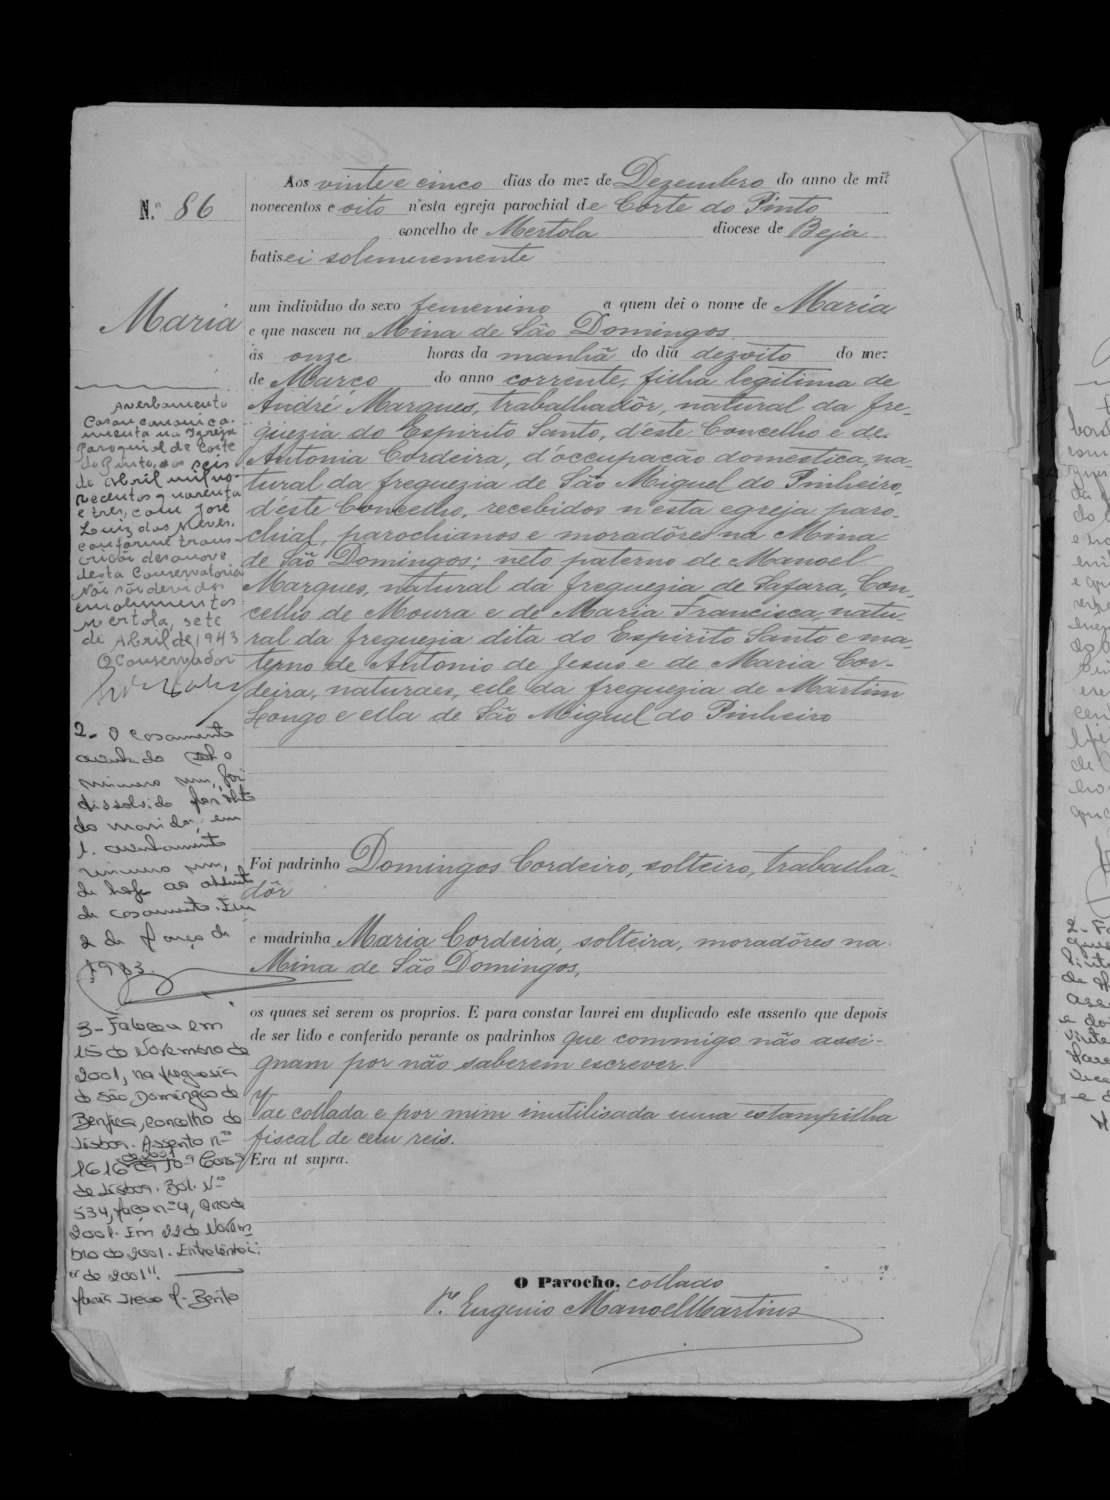 N.º 86
Maria
Aos vinte e cinco dias do mez de Dezembro do anno de mil
novecentos e oito n'esta egreja parochial de Corte do Pinto
concelho de Mertola diocese de Beja
batisei solemnemente
um individuo do sexo femenino a quem dei o nome de Maria
e que nasceu na Mina de São Domingos
ás onze horas da manhã do dia dezoito do mez
de Março do anno corrente, filha legitima de
André Marques, trabalhadôr, natural da fre-
guezia do Espirito Santo, d'este Concelho e de
Antonia Cordeira, d'occupação domestica, na-
tural da freguezia de São Miguel do Pinheiro,
d'éste Concelho, recebidos n'esta egreja paro-
chial, parochianos e moradôres na Mina
de São Domingos; neto paterno de Manoel
Marques, natural da freguezia de Safara, Con-
celho de Moura e de Maria Francisca, natu-
ral da freguezia dita do Espirito Santo e ma-
terno de Antonio de Jesus e de Maria Cor-
deira, naturaes, elle da freguezia de Martim
Longo e ella de São Miguel do Pinheiro
Foi padrinho Domingos Cordeiro, solteiro, trabalha-
dôr
e madrinha Maria Cordeira, solteira, moradôres na
Mina de São Domingos,
os quaes sei serem os proprios. E para constar lavrei em duplicado este assento que depois
de ser lido e conferido perante os padrinhos que commigo não assi-
gnam por não saberem escrever.
Vae collada e por mim inutilisada uma estampilha
fiscal de cem reis.
Era ut supra.
O Parocho, collado
P.e Eugenio Manoel Martins
Averbamento
Casou canonica-
mente na Igreja
Paroquial de Corte
do Pinto, aos seis
de Abril mil no-
vecentos quarenta
e tres, com José
Luiz das Neves,
conforme trans-
crição desanove
desta Conservatoria
Não são devidos
emolumentos
Mertola, sete
de Abril de 1943
O Conservador
2- O casamento
averbado sob o
número um, foi
dissolvido por óbito
do marido, em
1. averbamento
número um,
de hoje ao assento
de casamento. Em
2 de março de
1983.
3- Faleceu em
15 de Novembro de
2001, na freguesia
de São Domingos de
Benfica, concelho de
Lisboa. Assento nº
de 2001
1616 da 10ª Cons
de Lisboa. Bol. Nº
534, maço nº 4, ano de
2001. Em 22 de Novem
bro de 2001. Entrelinhei:
"de 2001".
Bento